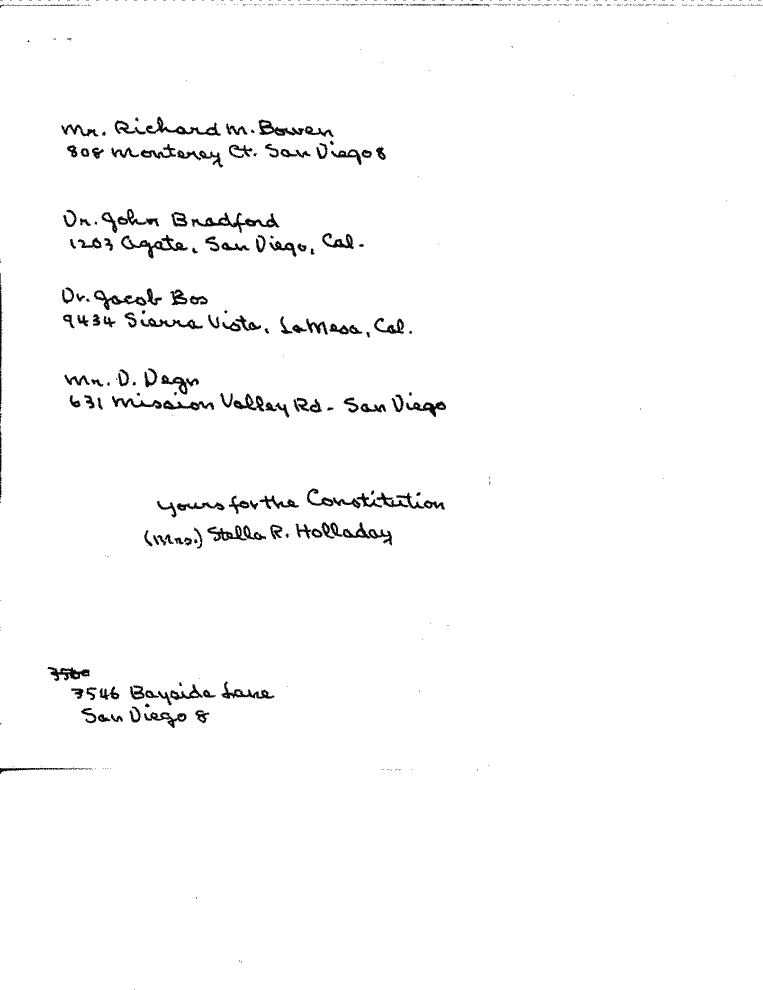 Mr. Richard M. Bowen
808 Monterey Ct. San Diego 8
Dr. John Bradford
1203 Agate, San Diego, Cal.
Dr. Jacob Bos
9434 Sierra Vista, La Mesa, Cal.
Mr. D. Degn
631 Mission Valley Rd - San Diego
Yours for the Constitution
(Mrs.) Stella R. Holladay
3546 Bayside Lane
San Diego 8